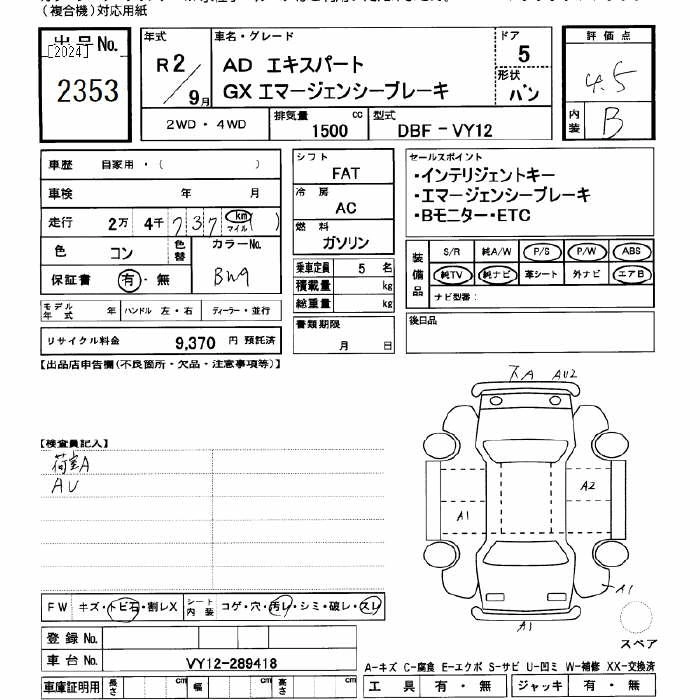 （複合機）対応用紙
出品No.
[2024]
2353
年式
R2／9月
車名・グレード
AD エキスパート
GX エマージェンシーブレーキ
ドア
5
形状
バン
評価点
4.5
内装
B
2WD・4WD
排気量 cc
1500
型式
DBF-VY12
車歴 自家用・（ ）
車検 年 月
走行 2万 4千 737 (km マイル)
色 コン 色替
カラーNo.
BW9
保証書 有・無
シフト
FAT
冷房
AC
燃料
ガソリン
乗車定員 5 名
積載量 kg
総重量 kg
セールスポイント
・インテリジェントキー
・エマージェンシーブレーキ
・Bモニター・ETC
装備品
S/R 純A/W P/S P/W ABS
純TV 純ナビ 革シート 外ナビ エアB
ナビ型番：
モデル年式 年 ハンドル 左・右 ディーラー・並行
リサイクル料金 9,370 円 預託済
書類期限
月 日
後日品
【出品店申告欄(不良箇所・欠品・注意事項等)】
スA AU2
【検査員記入】
荷室A
AU
A2
A1
A1
A1
スペア
FW キズ・トビ石・割レX シート内装 コゲ・穴・汚レ・シミ・破レ・スレ
登録No.
車台No. VY12-289418
車庫証明用 長さ cm 幅 cm 高さ cm
A-キズ C-腐食 E-エクボ S-サビ U-凹ミ W-補修 XX-交換済
工具 有・無 ジャッキ 有・無